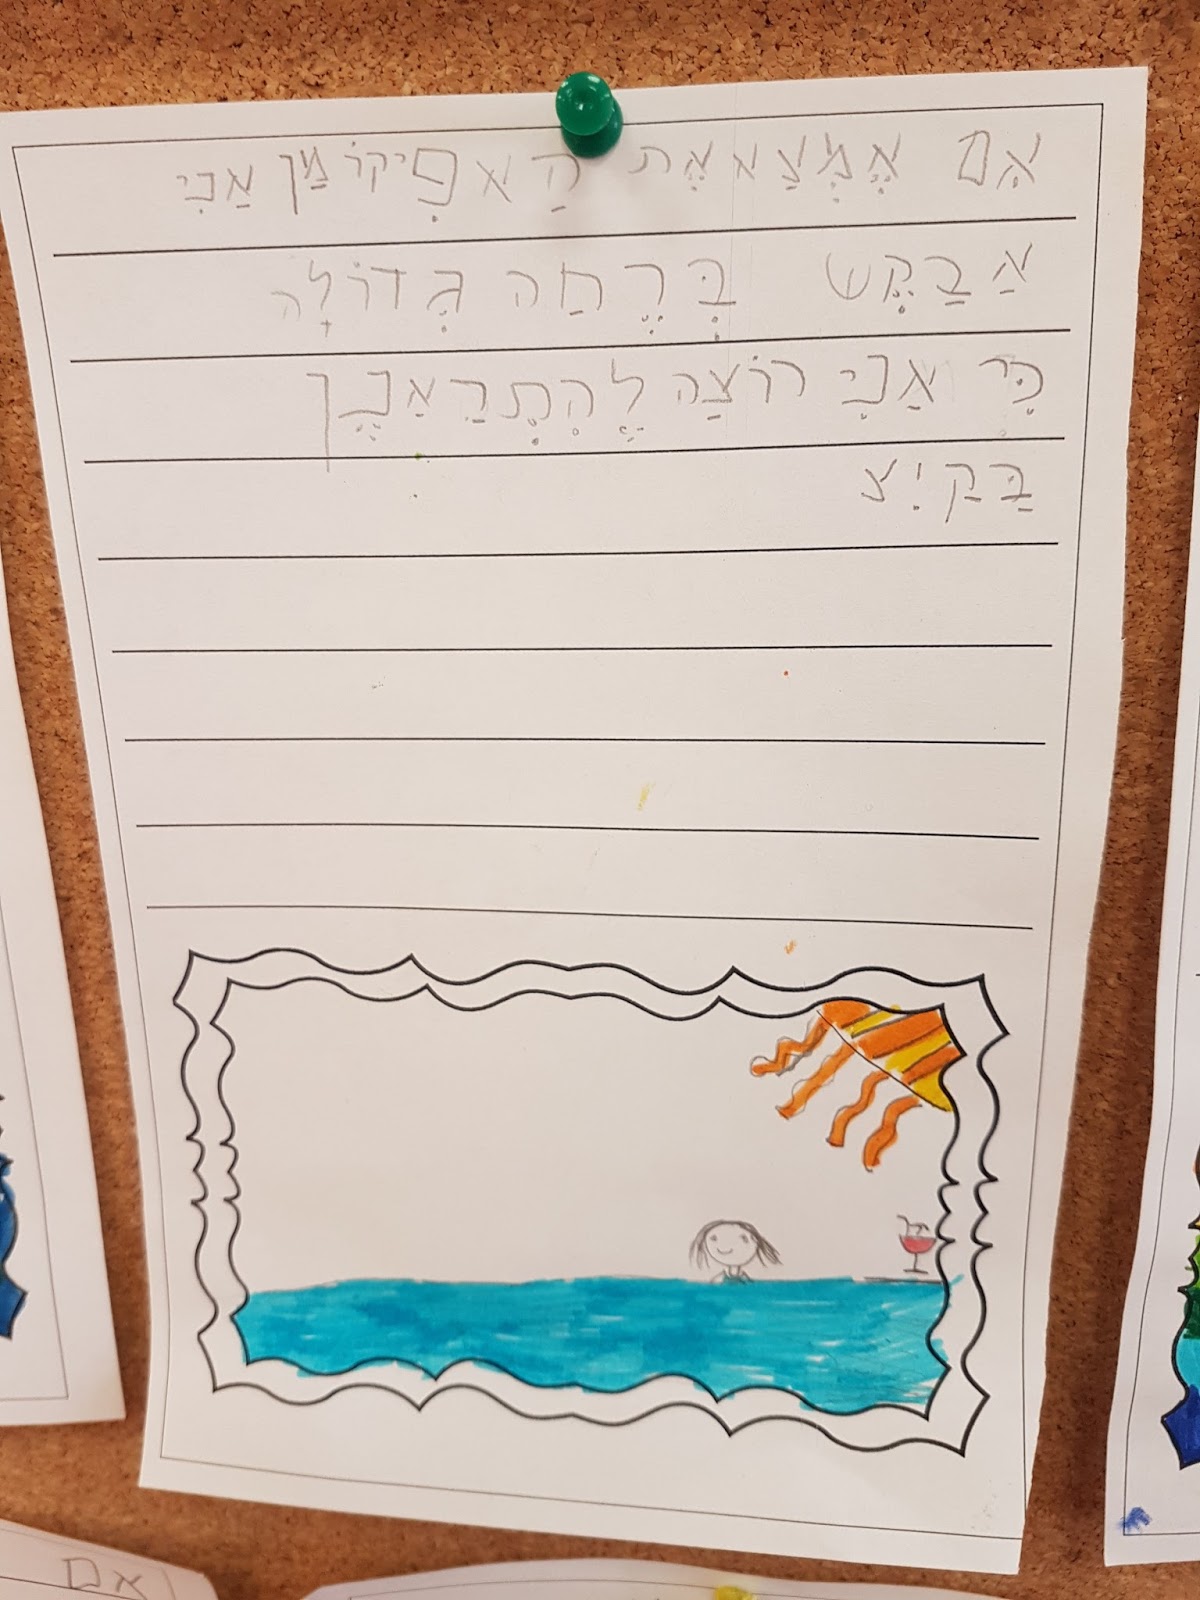 אִם אֶמְצָא אֶת הָאפִיקוֹמָן אֲנִי
אֲבַקֵש בְּרֶחַה גְדוֹלָה
כִּי אֲנִי רוֹצָה לְהִתְרַאֲנֵן
בַּקַיִצ
אם